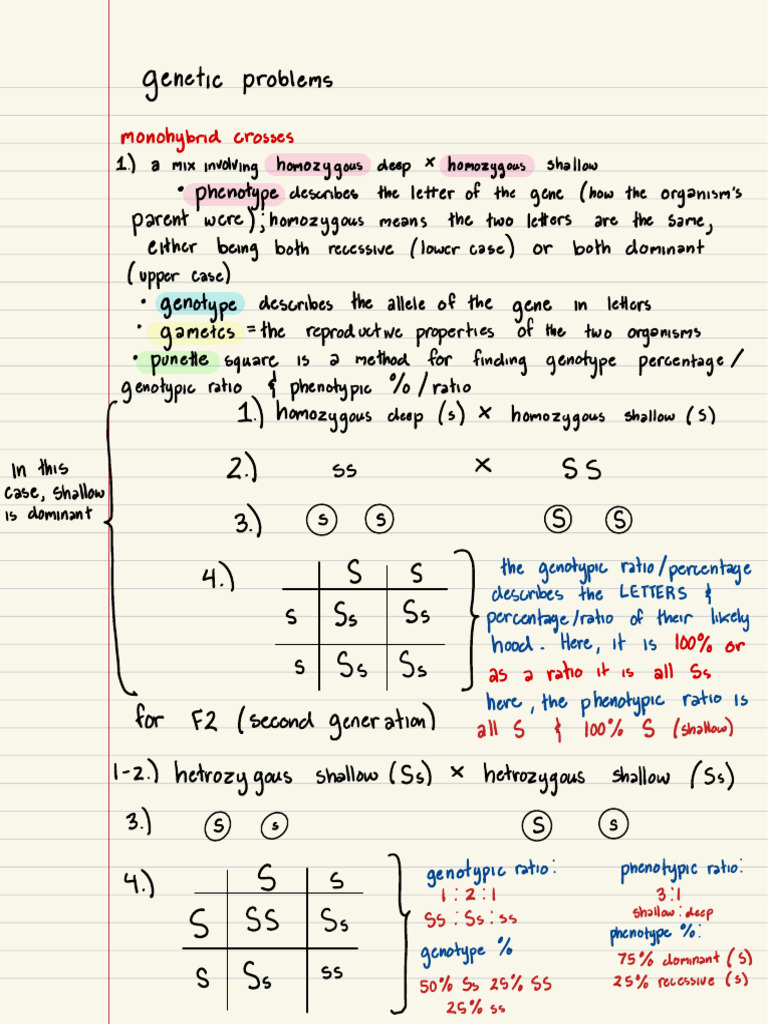 genetic problems
monohybrid crosses
1.) a mix involving homozygous deep x homozygous shallow
• phenotype describes the letter of the gene (how the organism's
parent were); homozygous means the two letters are the same,
either being both recessive (lower case) or both dominant
(upper case)
• genotype describes the allele of the gene in letters
• gametes = the reproductive properties of the two organisms
• punette square is a method for finding genotype percentage/
genotypic ratio & phenotypic %/ratio
1.) homozygous deep (s) x homozygous shallow (S)
In this
case, shallow
is dominant
2.) ss x SS
3.) s s S S
4.) S S
s Ss Ss
s Ss Ss
the genotypic ratio/percentage
describes the LETTERS &
percentage/ratio of their likely
hood. Here, it is 100% or
as a ratio it is all Ss
here, the phenotypic ratio is
all S & 100% S (shallow)
for F2 (second generation)
1-2.) hetrozygous shallow (Ss) x hetrozygous shallow (Ss)
3.) S s S s
4.) S s
S SS Ss
s Ss ss
genotypic ratio:
1:2:1
SS:Ss:ss
genotype %
50% Ss 25% SS
25% ss
phenotypic ratio:
3:1
shallow:deep
phenotype %:
75% dominant (S)
25% recessive (s)